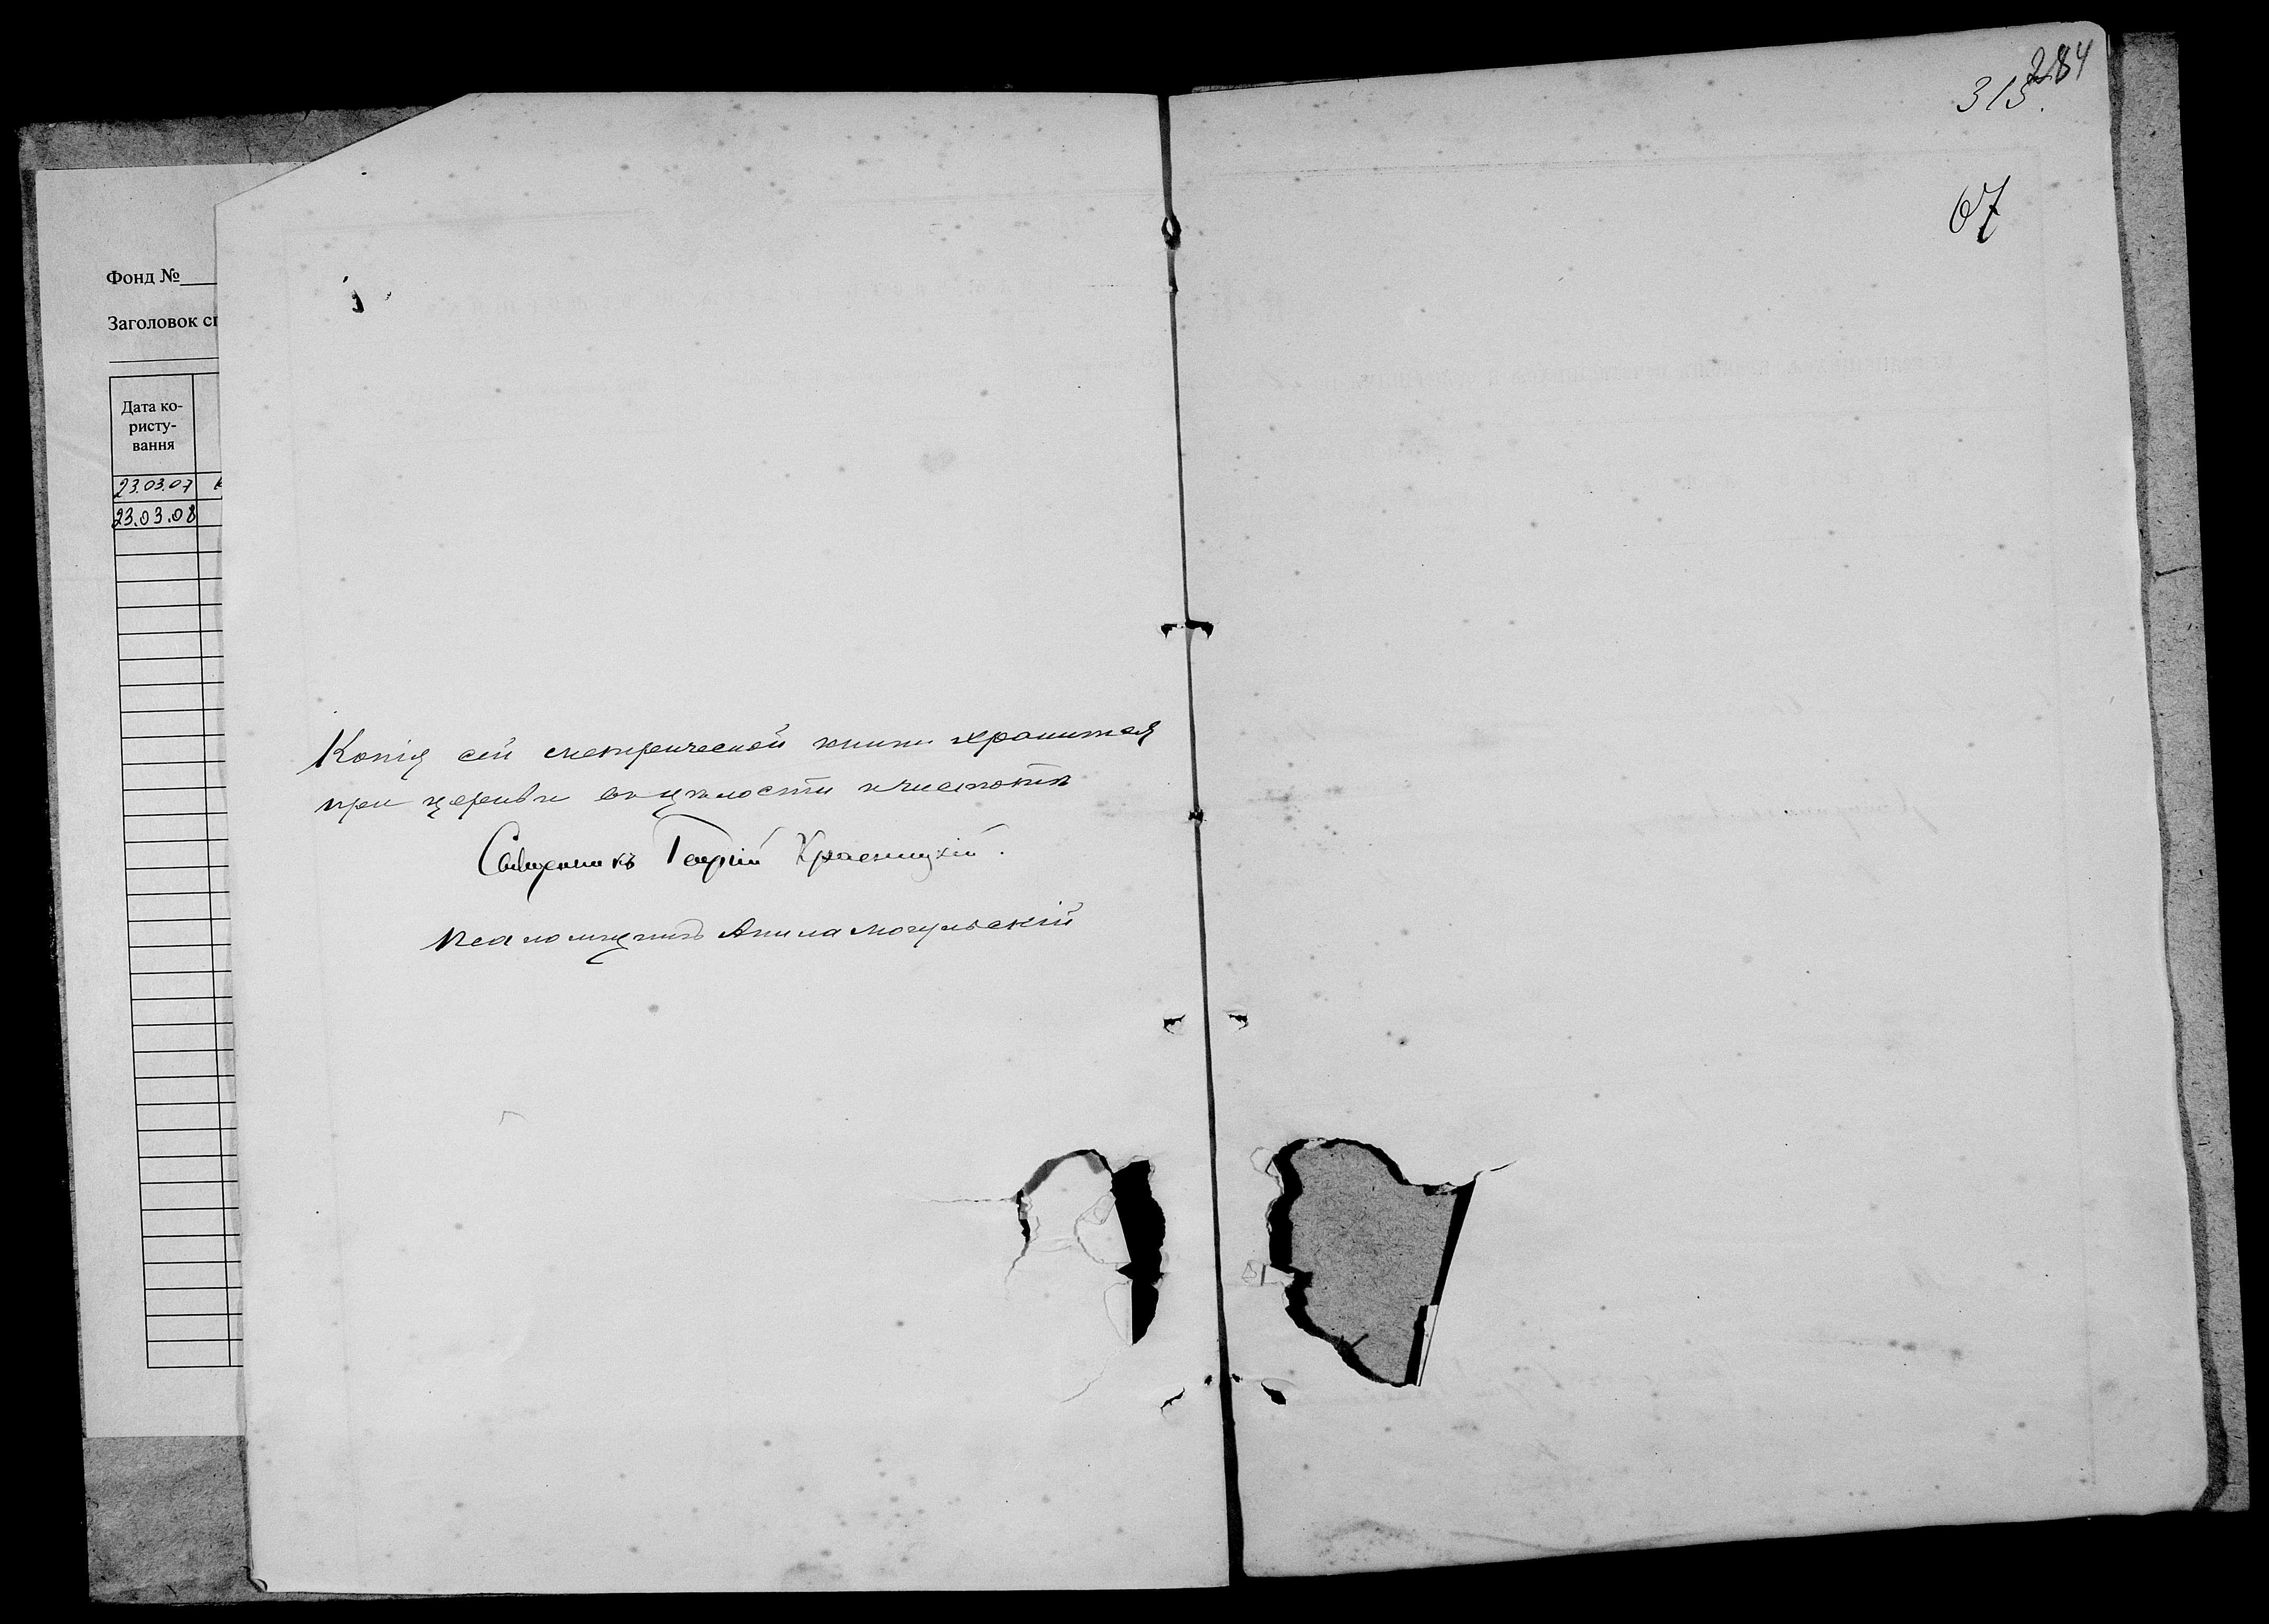 Фонд №
Заголовок сп
Дата ко-
ристу-
вання
23.03.07
23.03.08
Копія сей метрической книги хранится
при церкви въ цѣлости и чистотѣ
Священникъ Георгій Красницкій.
Псаломщикъ Акила Могульскій
284
313.
67